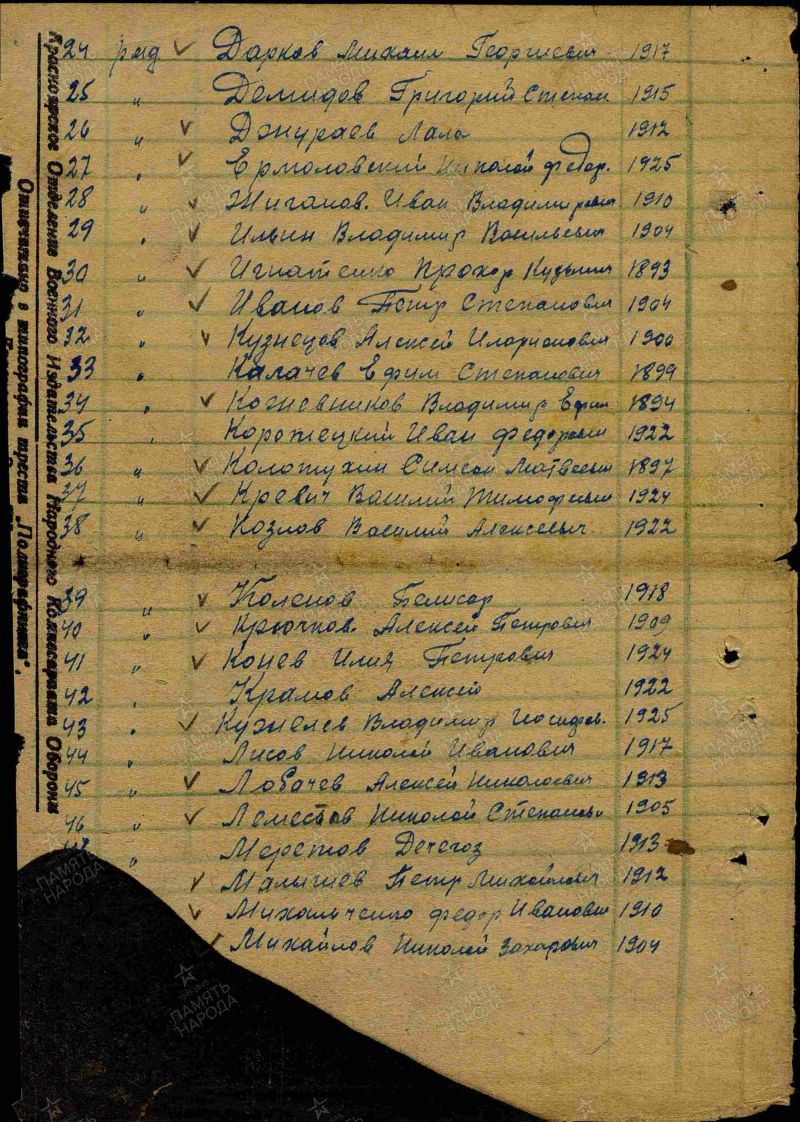 24 ряд ✓ Дарков Михаил Георгиевич 1917
25 " Демидов Григорий Степан 1915
26 " ✓ Джураев Лала 1912
27 " ✓ Ермоловский Николай Федор. 1925
28 " ✓ Жиганов. Иван Владимирович 1910
29 " ✓ Ильин Владимир Васильевич 1904
30 " ✓ Игнатенко Прохор Кузьмич 1893
31 " ✓ Иванов Петр Степанович 1904
32 " ✓ Кузнецов Алексей Иларионович 1900
33 " Калачев Ефим Степанович 1899
34 " ✓ Кожевников Владимир Ефим 1894
35 " Коротецкий Иван Федорович 1922
36 " ✓ Колотухин Симсон Матвеевич 1897
37 " ✓ Кревич Василий Тимофеевич 1924
38 " ✓ Козлов Василий Алексеевич 1922
39 " ✓ Коленов 1918
40 " ✓ Крючков. Алексей Петрович 1909
41 " ✓ Концев Илия Петрович 1924
42 " Крамов Алексей 1922
43 " ✓ Кужелев Владимир Иосифов. 1925
44 " Лисов Николай Иванович 1917
45 " ✓ Лобачев Алексей Николаевич 1913
46 " ✓ Леместов Николай Степанович 1905
" Меретов 1913
✓ Малышев Петр Михайлович 1912
✓ Михальченко Федор Иванович 1910
✓ Михайлов Николай Захарович 1904
Красноярское Отделение Военного Издательства Народного Комиссариата Обороны
Отпечатано в типографии треста „Полиграфкнига“.
ПАМЯТЬ НАРОДА